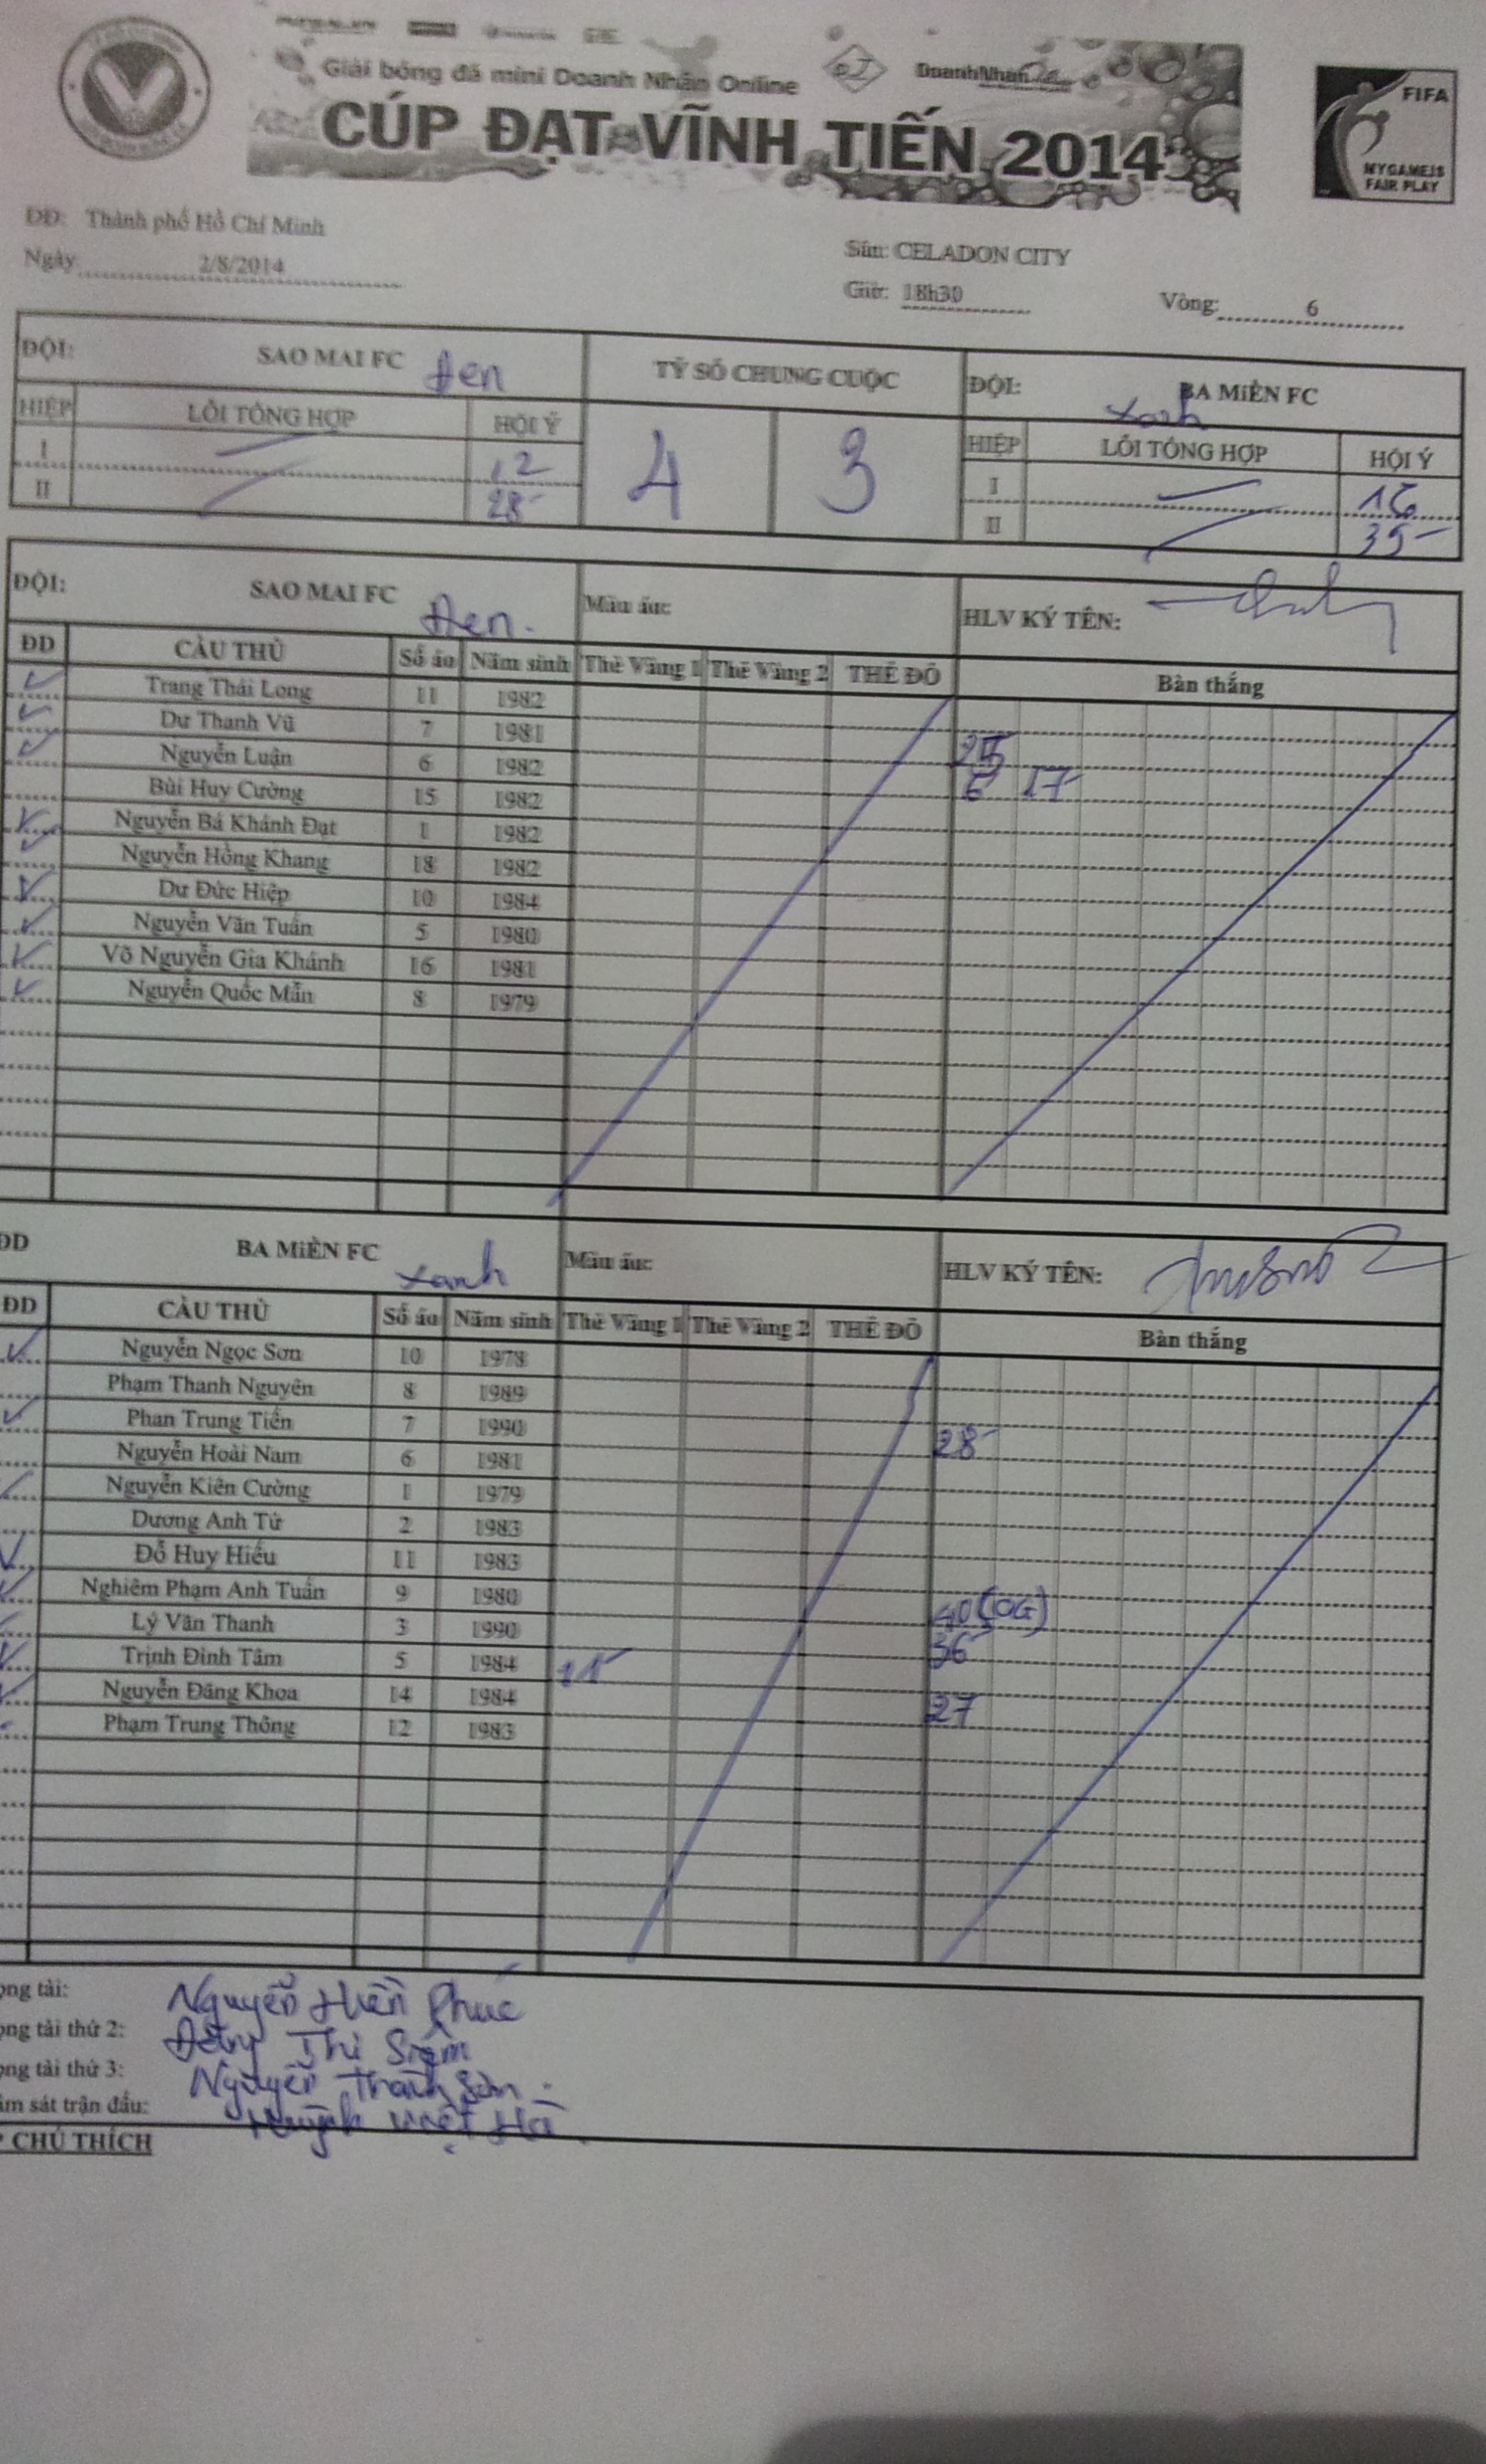 Giải bóng đá mini Doanh Nhân Online
DoanhNhân
CÚP ĐẠT VĨNH TIẾN 2014
FIFA
MY GAME IS
FAIR PLAY
DĐ: Thành phố Hồ Chí Minh
Sân: CELADON CITY
Ngày 2/8/2014
Giờ: 18h30 Vòng: 6
ĐỘI: SAO MAI FC Đen TỶ SỐ CHUNG CUỘC ĐỘI: BA MiỀN FC Xanh
HIỆP LỖI TỔNG HỢP HỘI Ý 4 3 HIỆP LỖI TỔNG HỢP HỘI Ý
I 12 I 16
II 28 II 35
ĐỘI: SAO MAI FC Đen. Màu áo: HLV KÝ TÊN:
ĐD CẦU THỦ Số áo Năm sinh Thẻ Vàng 1 Thẻ Vàng 2 THẺ ĐỎ Bàn thắng
Trang Thái Long 11 1982
Dư Thanh Vũ 7 1981
Nguyễn Luận 6 1982
Bùi Huy Cường 15 1982 6 17
Nguyễn Bá Khánh Đạt 1 1982
Nguyễn Hồng Khang 18 1982
Dư Đức Hiệp 10 1984
Nguyễn Văn Tuấn 5 1980
Võ Nguyễn Gia Khánh 16 1981
Nguyễn Quốc Mẫn 8 1979
ĐD BA MiỀN FC Xanh Màu áo: HLV KÝ TÊN:
ĐD CẦU THỦ Số áo Năm sinh Thẻ Vàng 1 Thẻ Vàng 2 THẺ ĐỎ Bàn thắng
Nguyễn Ngọc Sơn 10 1978
Phạm Thanh Nguyên 8 1989
Phan Trung Tiến 7 1990 28
Nguyễn Hoài Nam 6 1981
Nguyễn Kiên Cường 1 1979
Dương Anh Tứ 2 1983
Đỗ Huy Hiếu 11 1983
Nghiêm Phạm Anh Tuấn 9 1980 40 (OG)
Lý Văn Thanh 3 1990 36
Trịnh Đình Tâm 5 1984 11
Nguyễn Đăng Khoa 14 1984 27
Phạm Trung Thông 12 1983
ọng tài: Nguyễn Hiền Phúc
ọng tài thứ 2: Thị
ọng tài thứ 3: Nguyễn Thanh Sơn.
ám sát trận đấu: Huỳnh Việt Hà.
CHÚ THÍCH